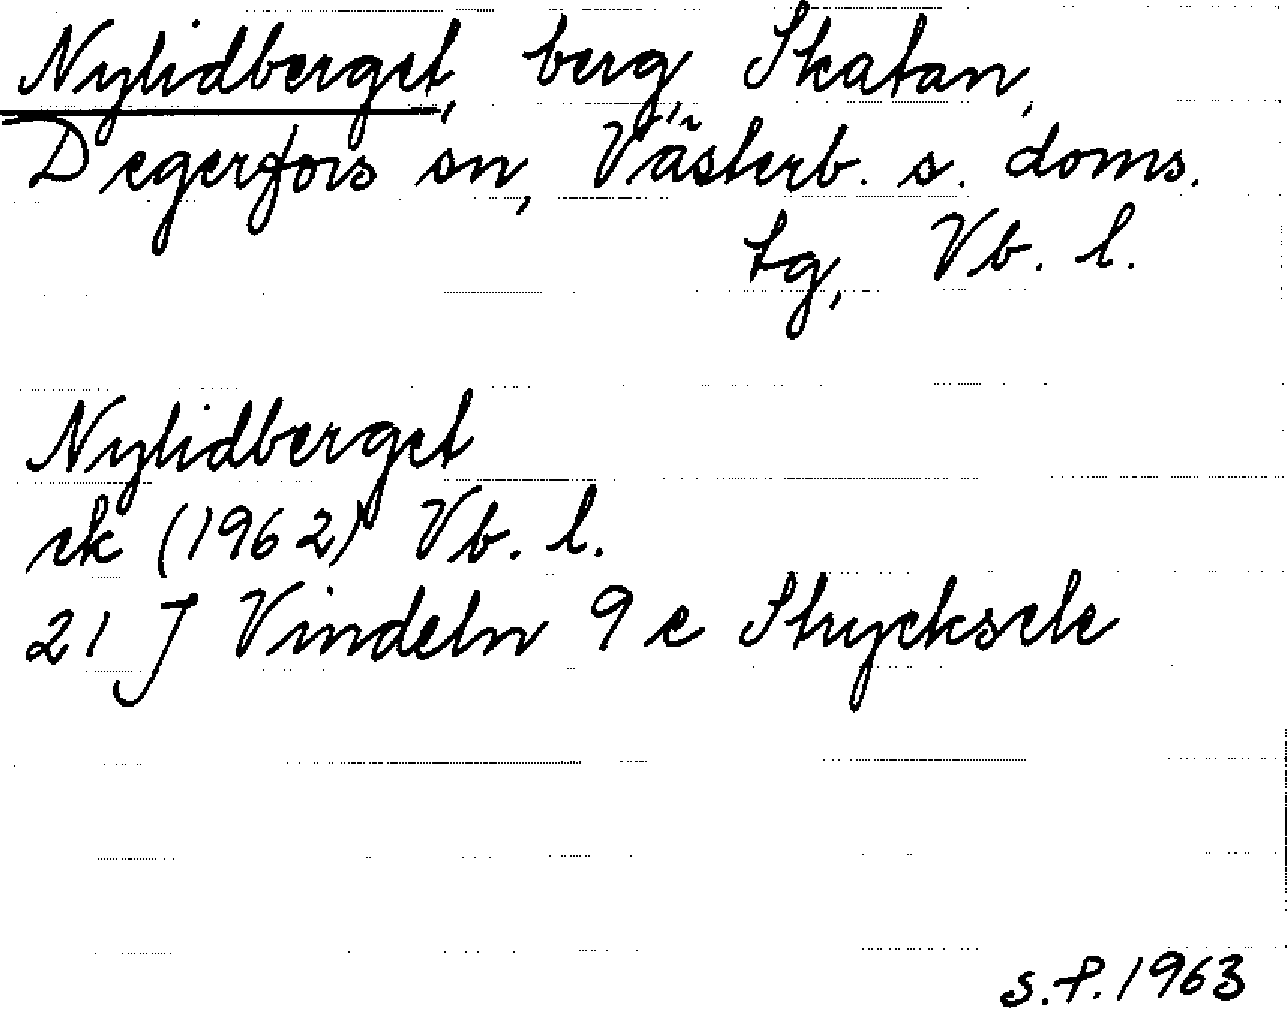 Nylidberget, berg, Skatan,
Degerfors sn, Västerb. s. doms.
tg, Vb. l.
Nylidberget
ek (1962) Vb. l.
21 J Vindeln 9 e Strycksele
S.P. 1963